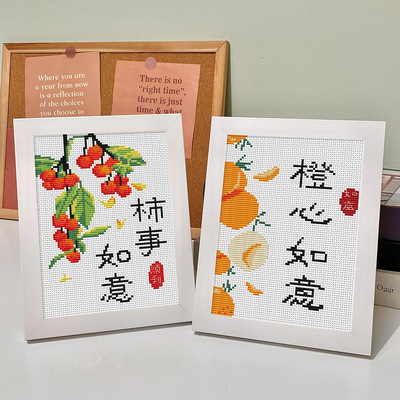 Where you are
a year from now
is a reflection
of the choices
you choose to
There is no
"right time",
there is just
time & what
柿事
如意
顺利
橙
心
如
意